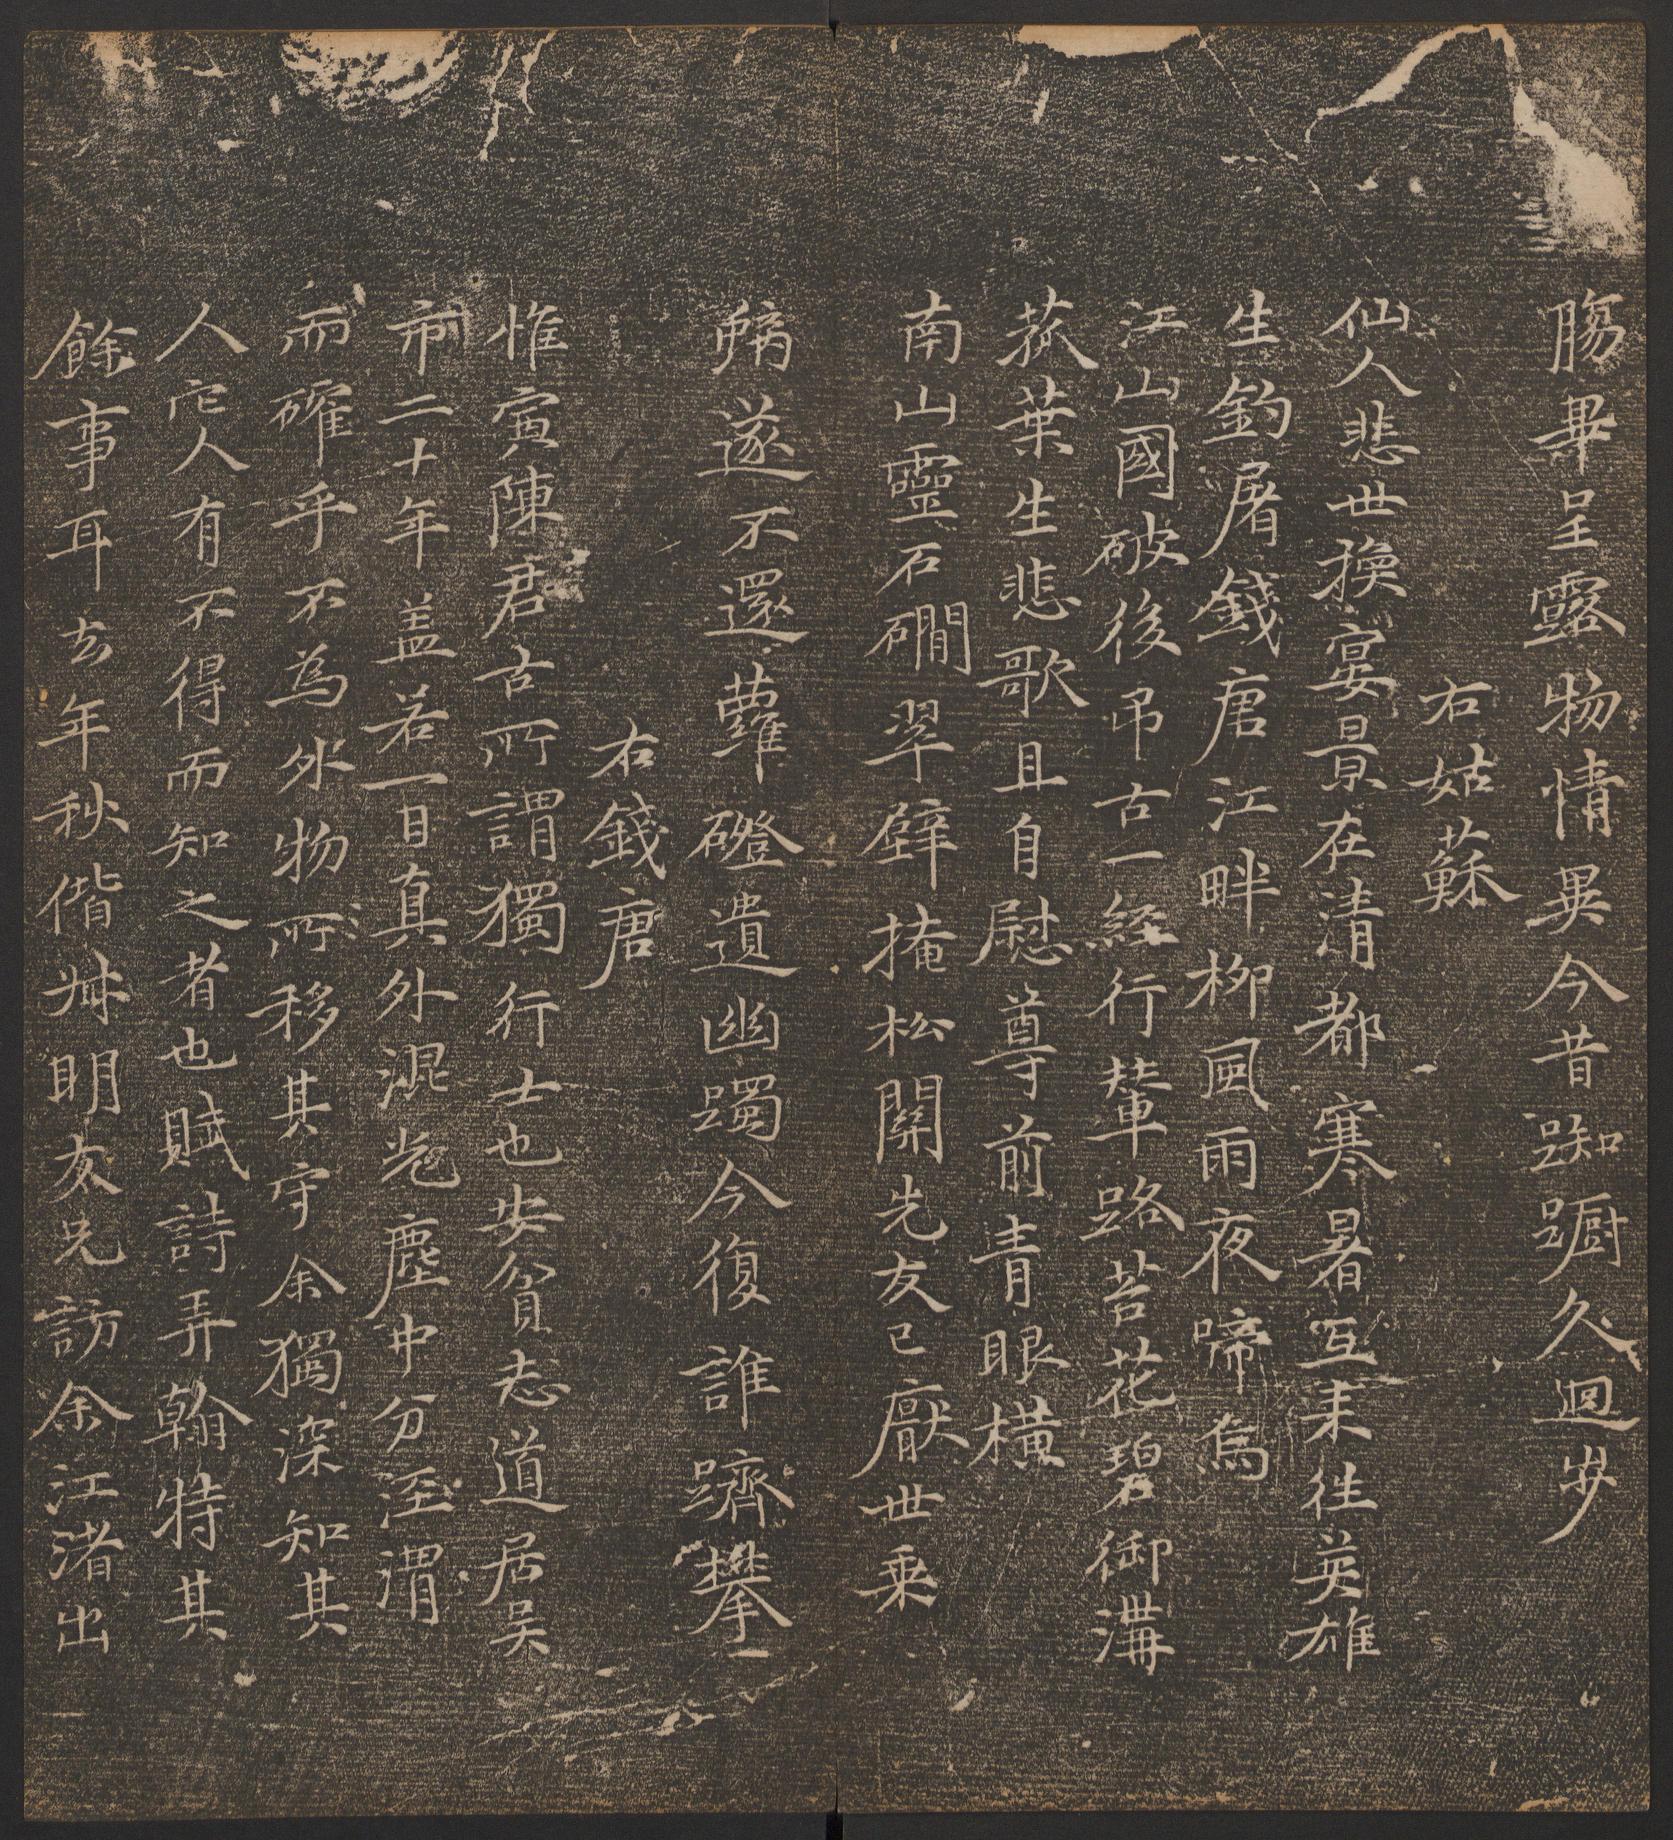 觴畢呈露物情異今昔踟躕久迴步
右姑蘇
仙人悲世換宴景在清都寒暑互来往英雄
生釣屠錢唐江畔柳風雨夜啼烏
江山國破後弔古一經行輦路苔花碧御溝
菰葉生悲歌且自慰尊前青眼橫
南山靈石磵翠壁掩松關先友已厭世乗
鸞遂不還蘿磴遺幽躅今復誰躋攀
右錢唐
惟寅陳君古所謂獨行士也安貧志道居吴
市二十年盖若一日真外混光塵中分涇渭
而確乎不為外物所移其守余獨深知其
人它人有不得而知之者也賦詩弄翰特其
餘事耳去年秋偕叔明友兄訪余江渚出